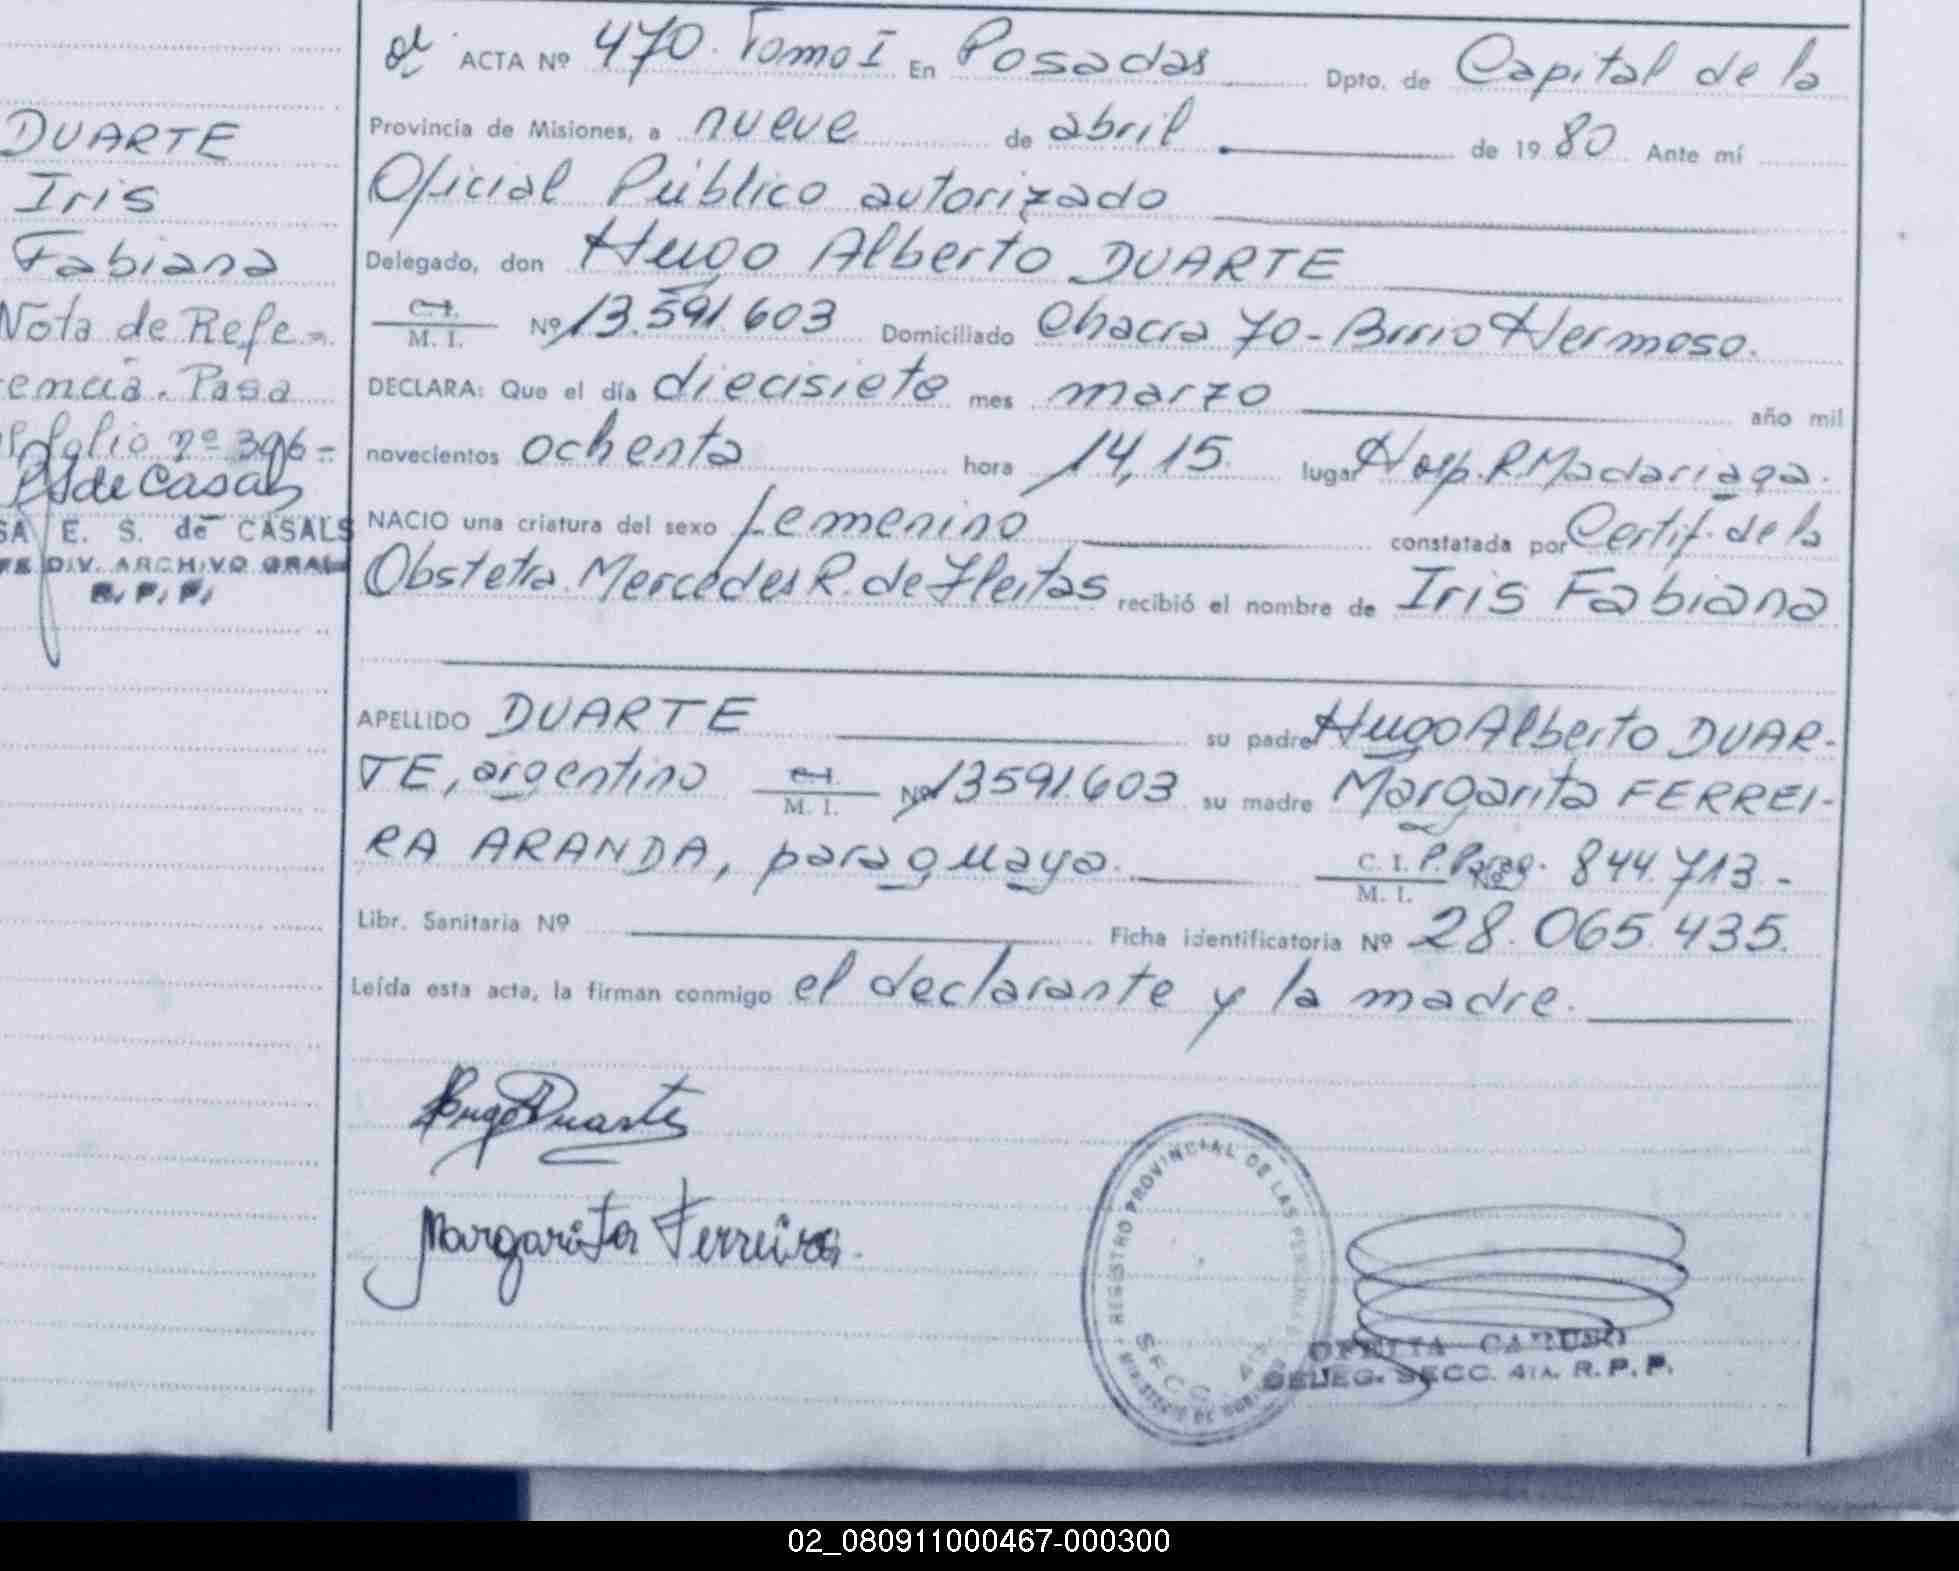 DUARTE
Iris
Fabiana
Nota de Refe-
encia. Pasa
folio nº 396-
de Casals
SA E. S. de CASALS
DIV. ARCHIVO GRAL
R. P. P.
ACTA Nº 470. Tomo I En Posadas Dpto. de Capital de la
Provincia de Misiones, a nueve de abril de 1980 Ante mí
Oficial Público autorizado
Delegado, don Hugo Alberto DUARTE
C.I. M. I. Nº 13.591.603 Domiciliado Chacra 70 - Brrio Hermoso.
DECLARA: Que el día diecisiete mes marzo año mil
novecientos ochenta hora 14,15 lugar Hosp. R. Madariaga.
NACIO una criatura del sexo femenino constatada por Certif. de la
Obstetra. Mercedes R. de Fleitas recibió el nombre de Iris Fabiana
APELLIDO DUARTE su padre Hugo Alberto DUAR-
TE, argentino C.I. M. I. Nº 13591.603 su madre Margarita FERREI-
RA ARANDA, paraguaya. C. I. M. I. P. Parag. Nº 844.713.-
Libr. Sanitaria Nº Ficha identificatoria Nº 28.065.435.
Leída esta acta, la firman conmigo el declarante y la madre.
Hugo Duarte
Margarita Ferreira.
REGISTRO PROVINCIAL DE LAS PERSONAS
SECC. 4ta
OFELIA CARUSO
DELEG. SECC. 4TA. R. P. P.
02_080911000467-000300